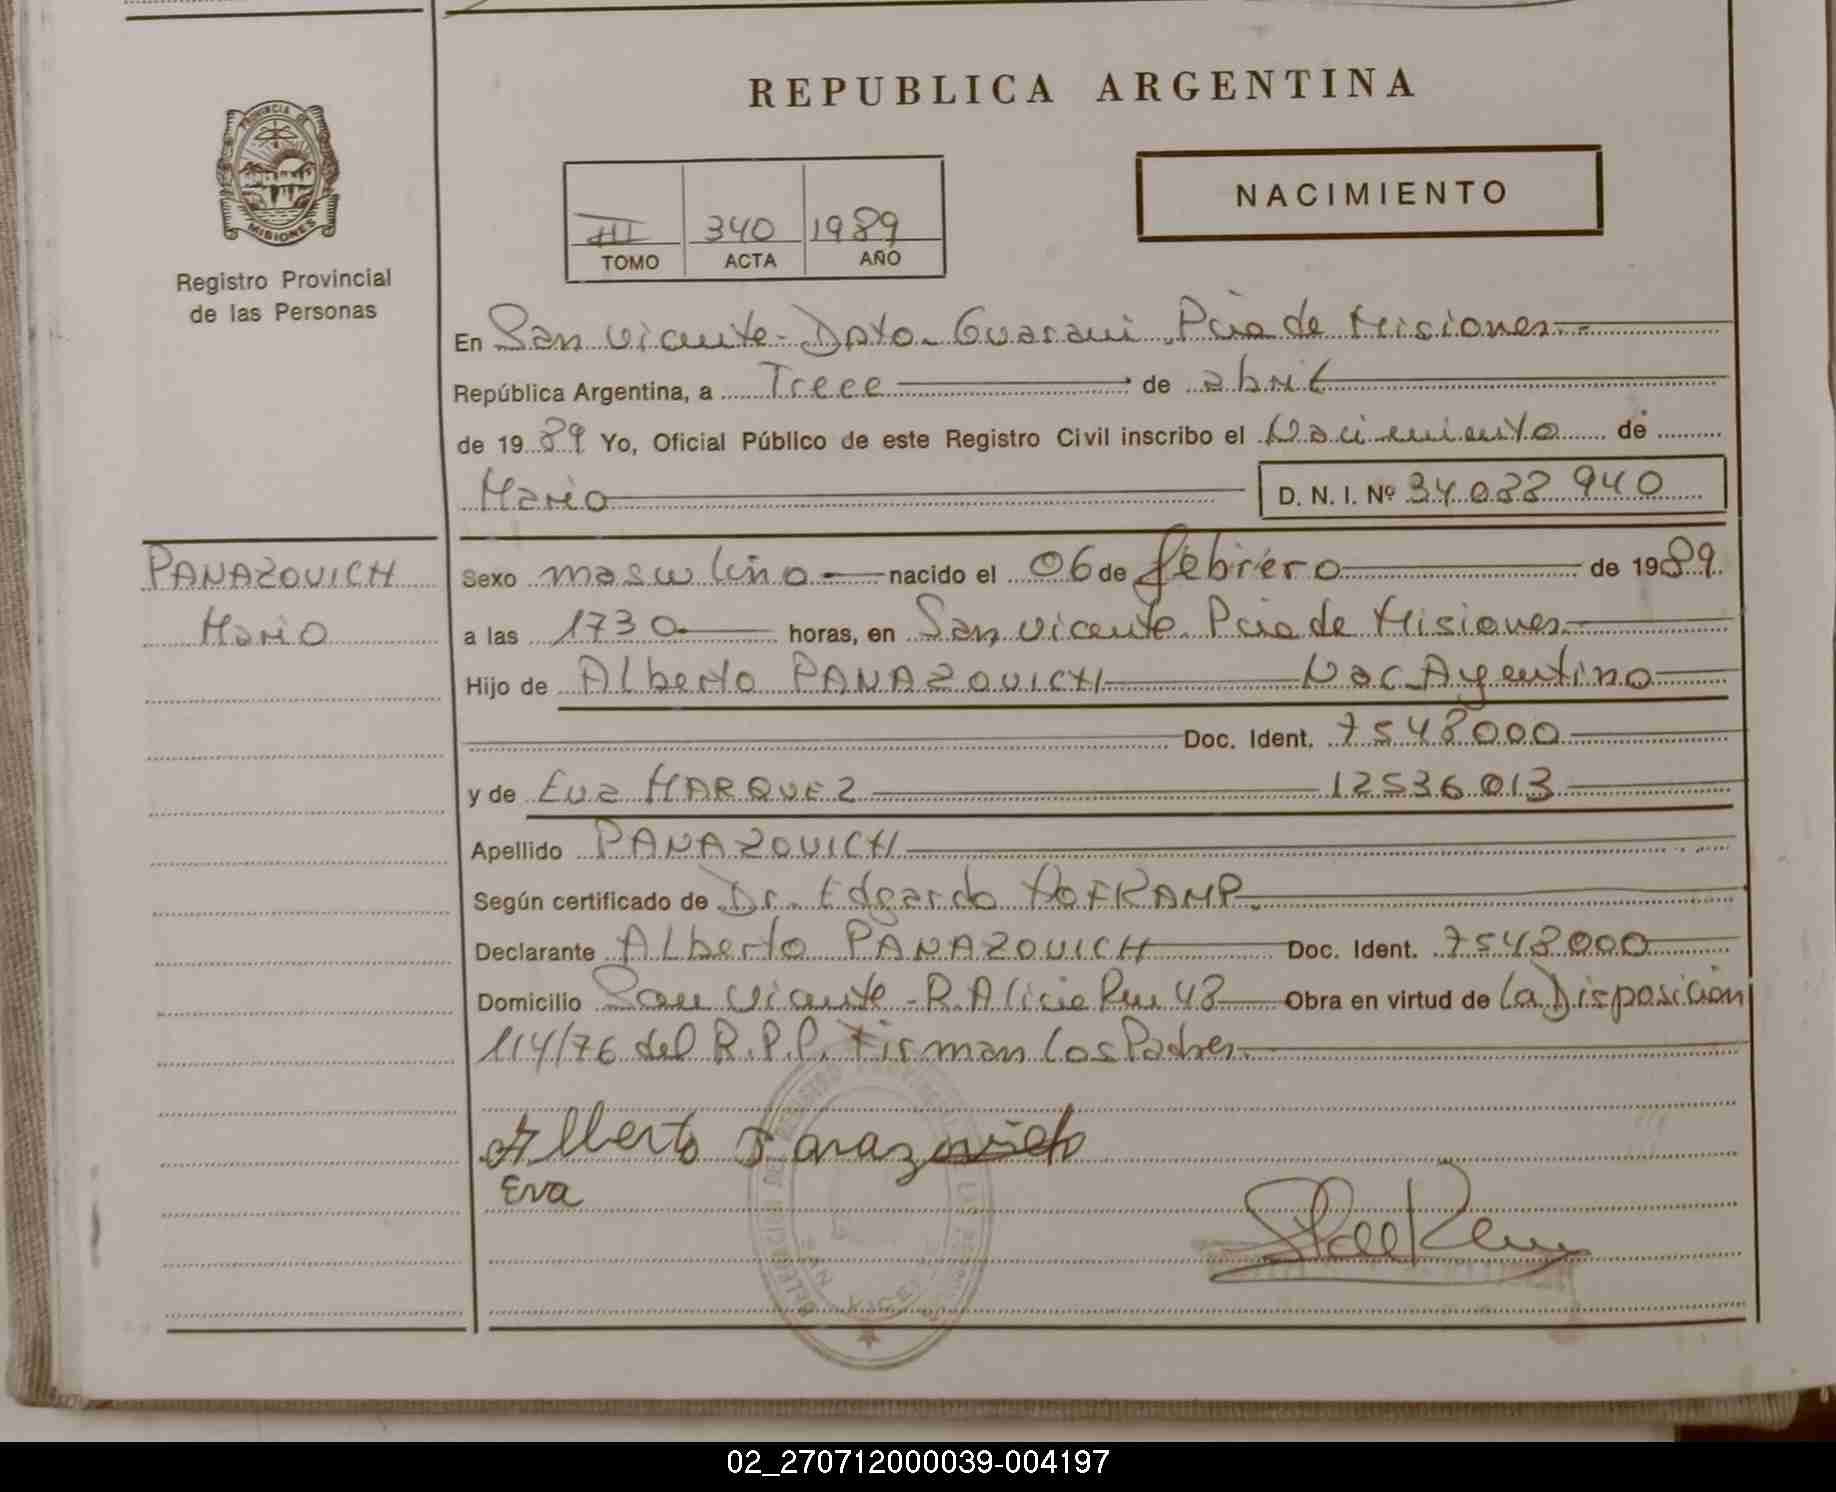 REPUBLICA ARGENTINA
PROVINCIA DE
MISIONES
Registro Provincial
de las Personas
III 340 1989
TOMO ACTA AÑO
NACIMIENTO
En San Vicente - Dpto. Guarani Pcia de Misiones
República Argentina, a Trece de abril
de 1989 Yo, Oficial Público de este Registro Civil inscribo el Nacimiento de
Mario D. N. I. Nº 34.088.940
PANAZOVICH
Mario
Sexo masculino nacido el 06 de febrero de 1989.
a las 1730 horas, en San Vicente Pcia de Misiones
Hijo de Alberto PANAZOVICH Nac. Argentino
Doc. Ident. 7548000
y de Eva MARQUEZ 12536013
Apellido PANAZOVICH
Según certificado de Dr. Edgardo HOFKAMP.
Declarante Alberto PANAZOVICH Doc. Ident. 7548000
Domicilio San Vicente - R. Alicia Km 48 Obra en virtud de la Disposición
114/76 del R.P.P. Firman los Padres.
Alberto Panazovich
Eva
02_270712000039-004197